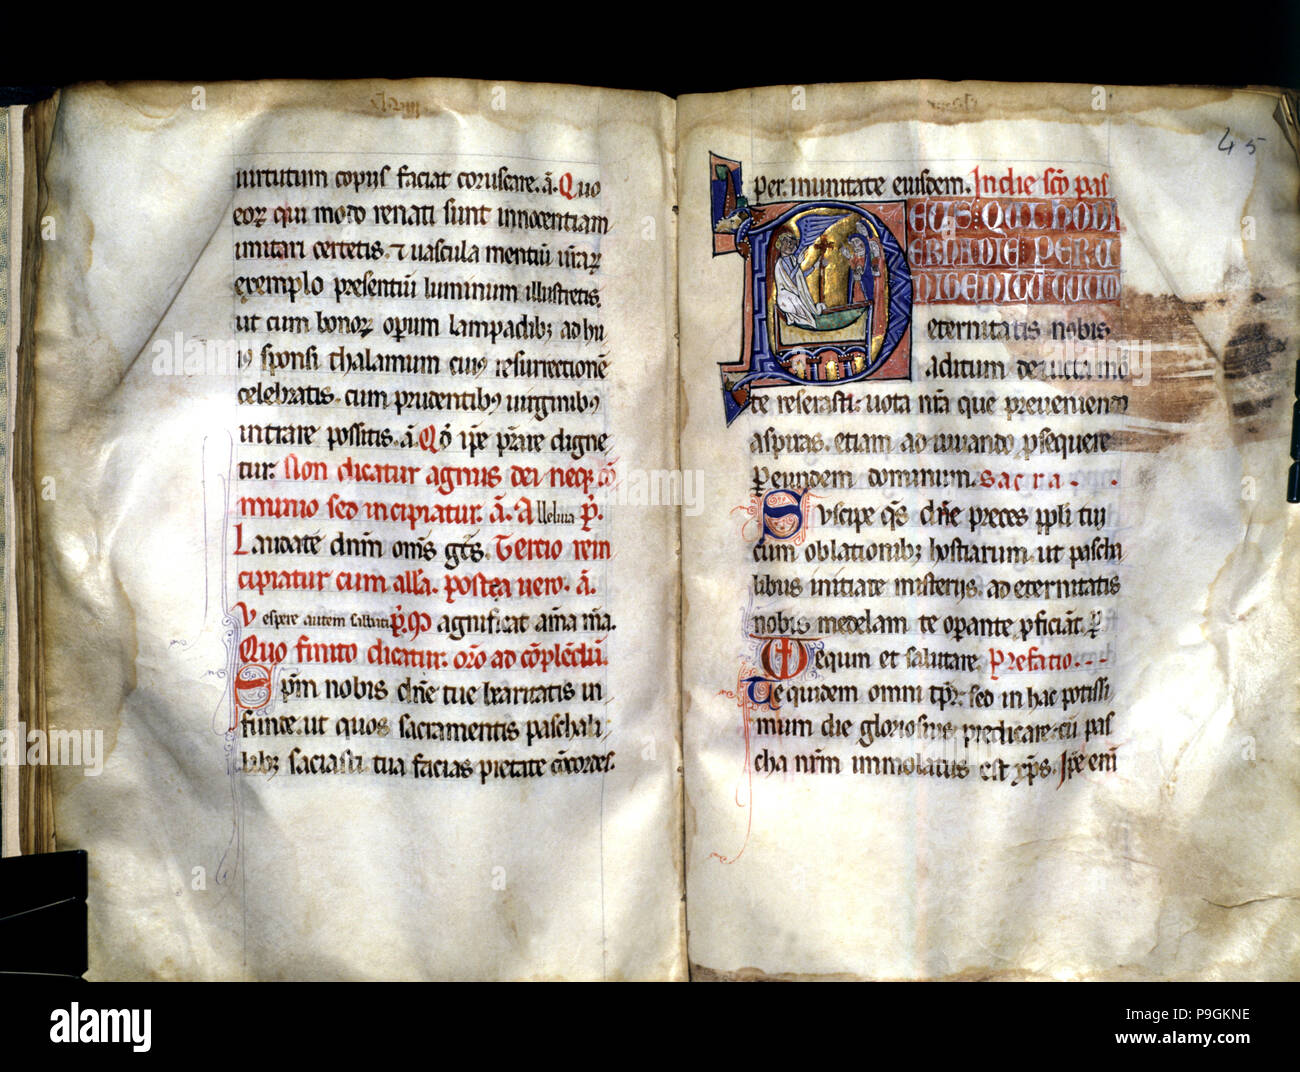 uirtutum copus faciat coruscare. a. Quo
eoꝝ qui modo renati sunt innocentiam
imitari certetis. ⁊ uascula mentiū ur̄aꝝ
exemplo presentiū luminum illustretis.
ut cum bonoꝝ opum lampadibꝫ ad hu
iꝰ sponsi thalamum cuiꝰ resurrectione
celebratis. cum prudentibꝰ uirginibꝰ
intrare possitis. a. Qd̄ ip̄e p̄stare digne
tur. Non dicatur agnus dei neqꝫ cō
munio sed incipiatur. a. Alleluia p̄.
Laudate dn̄m om̄s gn̄s. Tertio rein
cipiatur cum alla. postea uero. a.
Vespere autem sabbati p̄. Magnificat aīa m̄a.
Quo finito dicatur. or̄o ad cōplendū.
Sp̄m nobis dn̄e tue karitatis in
funde. ut quos sacramentis paschali
bibꝫ saciasti tua facias pietate cōcordes.
45
per. inuntate eiusdem. In die sc̄o pas
DEUS QUI HODI
ERNA DIE PER U
NIGENITŪ TUUM
eternitatis nobis
aditum deuicta mor
te reserasti: uota nr̄a que preueniendo
aspiras. etiam adiuuando ꝓsequere
Per eundem dominum. Sacra.
Suscipe qs̄ dn̄e preces ppl̄i tui
cum oblationibꝫ hostiarum. ut pascha
libus initiate misterijs. ad eternitatis
nobis medelam te oꝑante ꝓficiāt. P̄
Uequm et salutare. Prefatio.
Te quidem omni tp̄r. sed in hac potissi
mum die gloriosius predicare. cū pas
cha nr̄m immolatus est xp̄s. Ip̄e enī
alamy
Image ID: P9GKNE
www.alamy.com